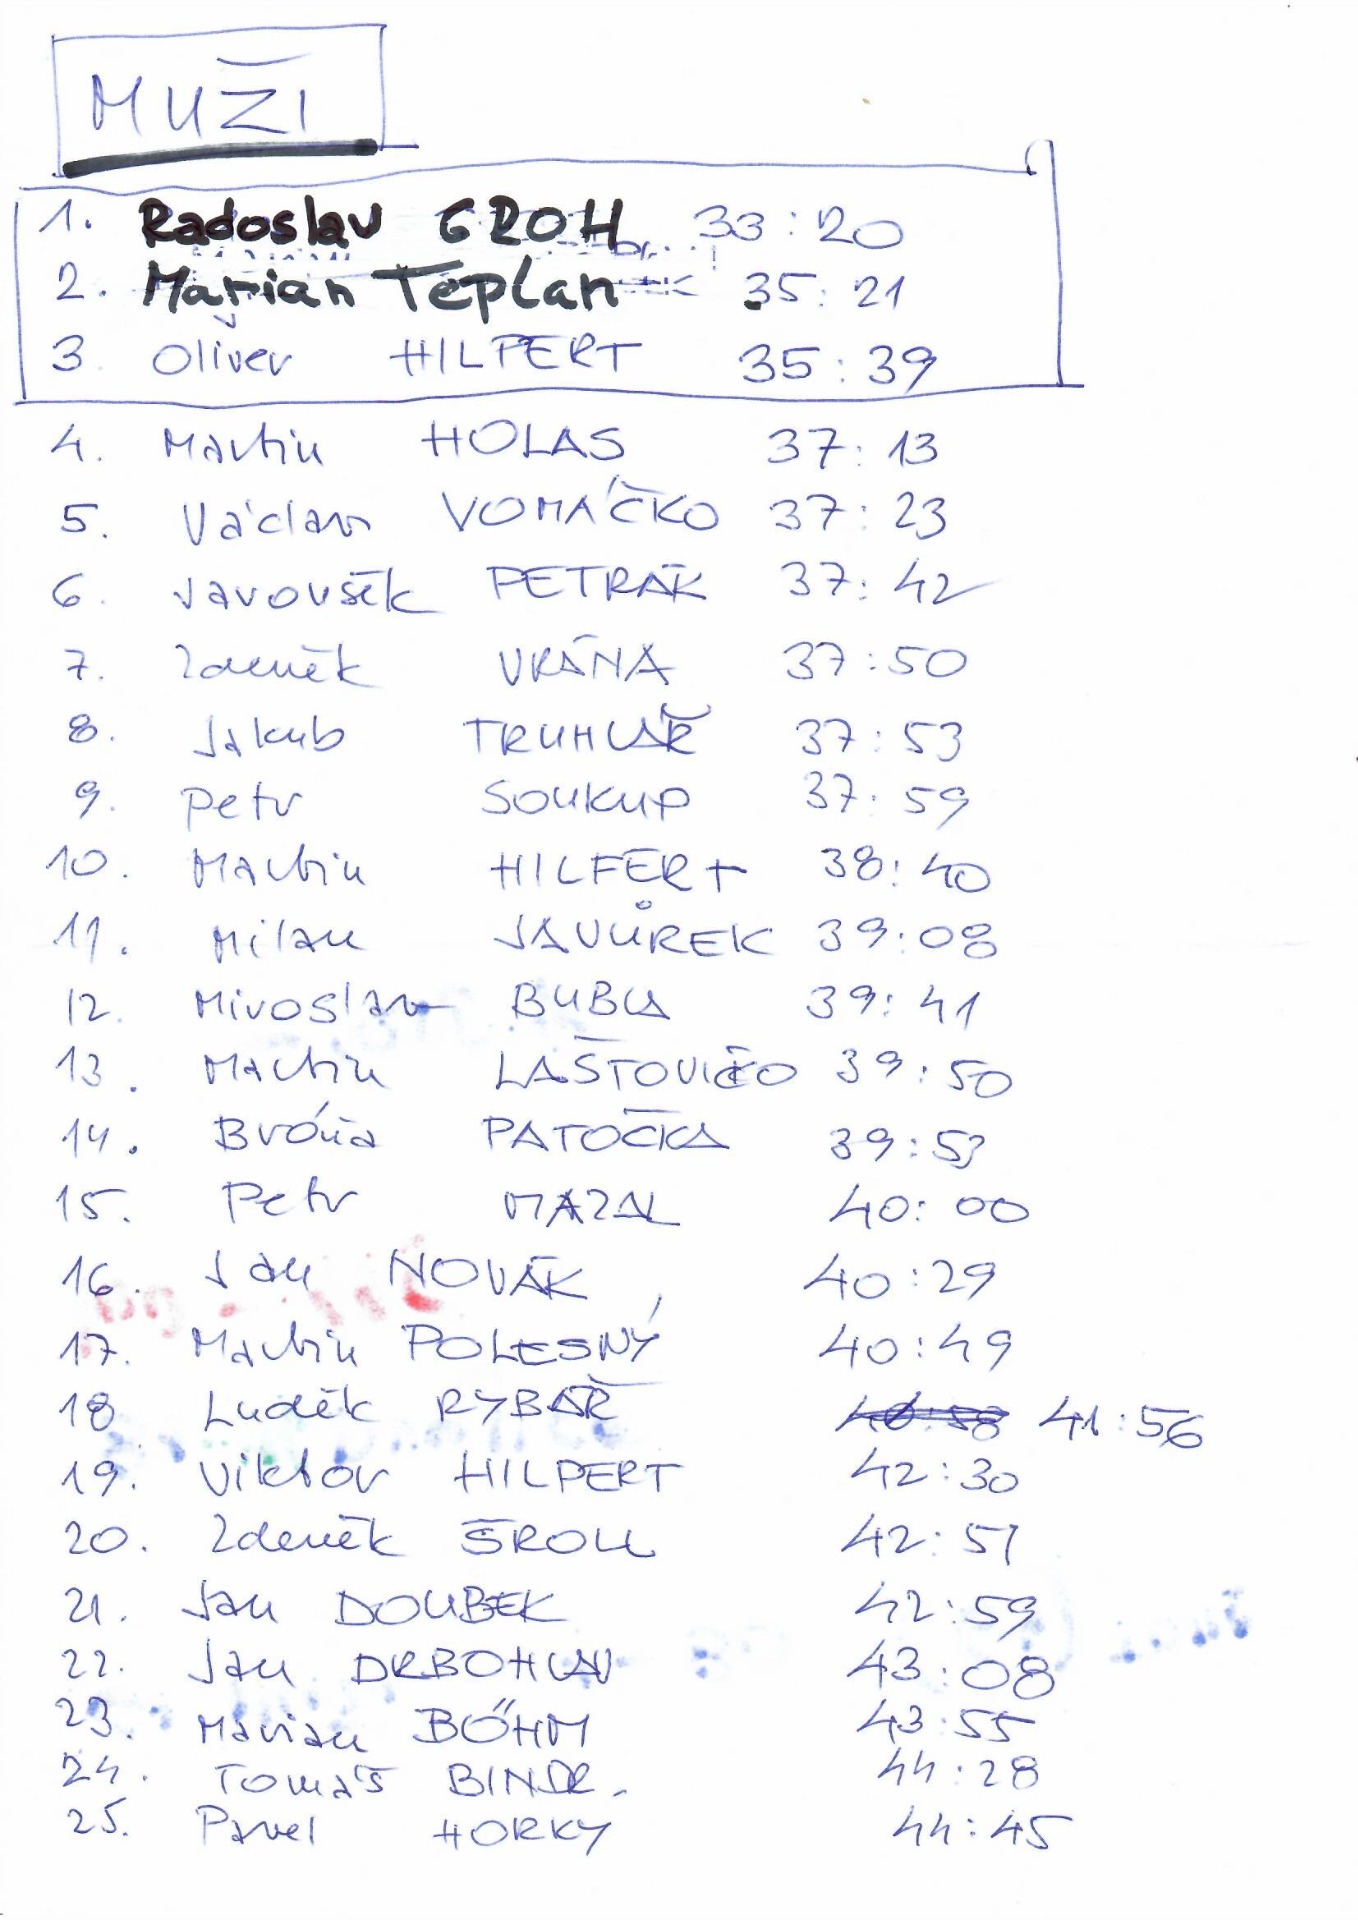 MUŽI
1. Radoslav GROH 33:20
2. Marian Teplan 35:21
3 Oliver HILPERT 35:39
4. Martin HOLAS 37:13
5. Václav VOMÁČKO 37:23
6. Javoušek PETRÁK 37:42
7. Zdeněk VRÁNA 37:50
8. Jakub TRUHLÁŘ 37:53
9. Petr SOUKUP 37:59
10. Martin HILFERT 38:40
11. Milan JAVŮREK 39:08
12. Miroslav BUBLA 39:41
13. Martin LAŠTOVIČKO 39:50
14. Bróňa PATOČKA 39:53
15. Petr MAZAL 40:00
16. Jan NOVÁK 40:29
17. Martin POLESNÝ 40:49
18 Luděk RYBÁŘ 40:58 41:56
19. Viktor HILPERT 42:30
20. Zdeněk ŠROLL 42:51
21. Jan DOUBEK 42:59
22. Jan DRBOHLAV 43:08
23. Marian BÖHM 43:55
24. Tomáš BINDR. 44:28
25. Pavel HORKY 44:45